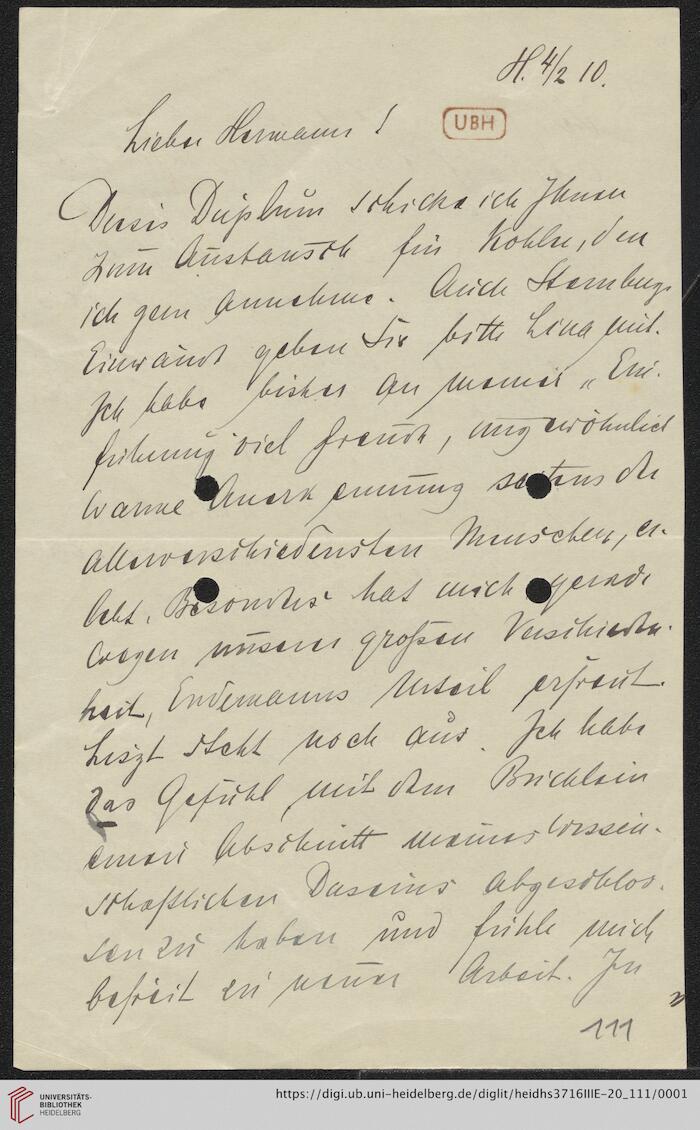 H. 4/2 10.
Lieber Hermann!
UBH
Dieses Duplum schicke ich Ihnen
zum Austausch für Kohler, den
ich gern annehme. Auch Sternbergs
Einwände geben Sie bitte Lina mit.
Ich habe bisher an meiner „Ein-
führung" viel Freude, ungewöhnlich
warme Anerkennung seitens der
allerverschiedensten Menschen, er-
lebt. Besonders hat mich gerade
wegen unserer großen Verschieden-
heit, Endemanns Urteil erfreut.
Liszt steht noch aus. Ich habe
das Gefühl, mit dem Büchlein
einen Abschnitt meines wissen-
schaftlichen Daseins abgeschlos-
sen zu haben und fühle mich
befreit zu neuer Arbeit. In
111
UNIVERSITÄTS-
BIBLIOTHEK
HEIDELBERG
https://digi.ub.uni-heidelberg.de/diglit/heidhs3716IIIE-20_111/0001